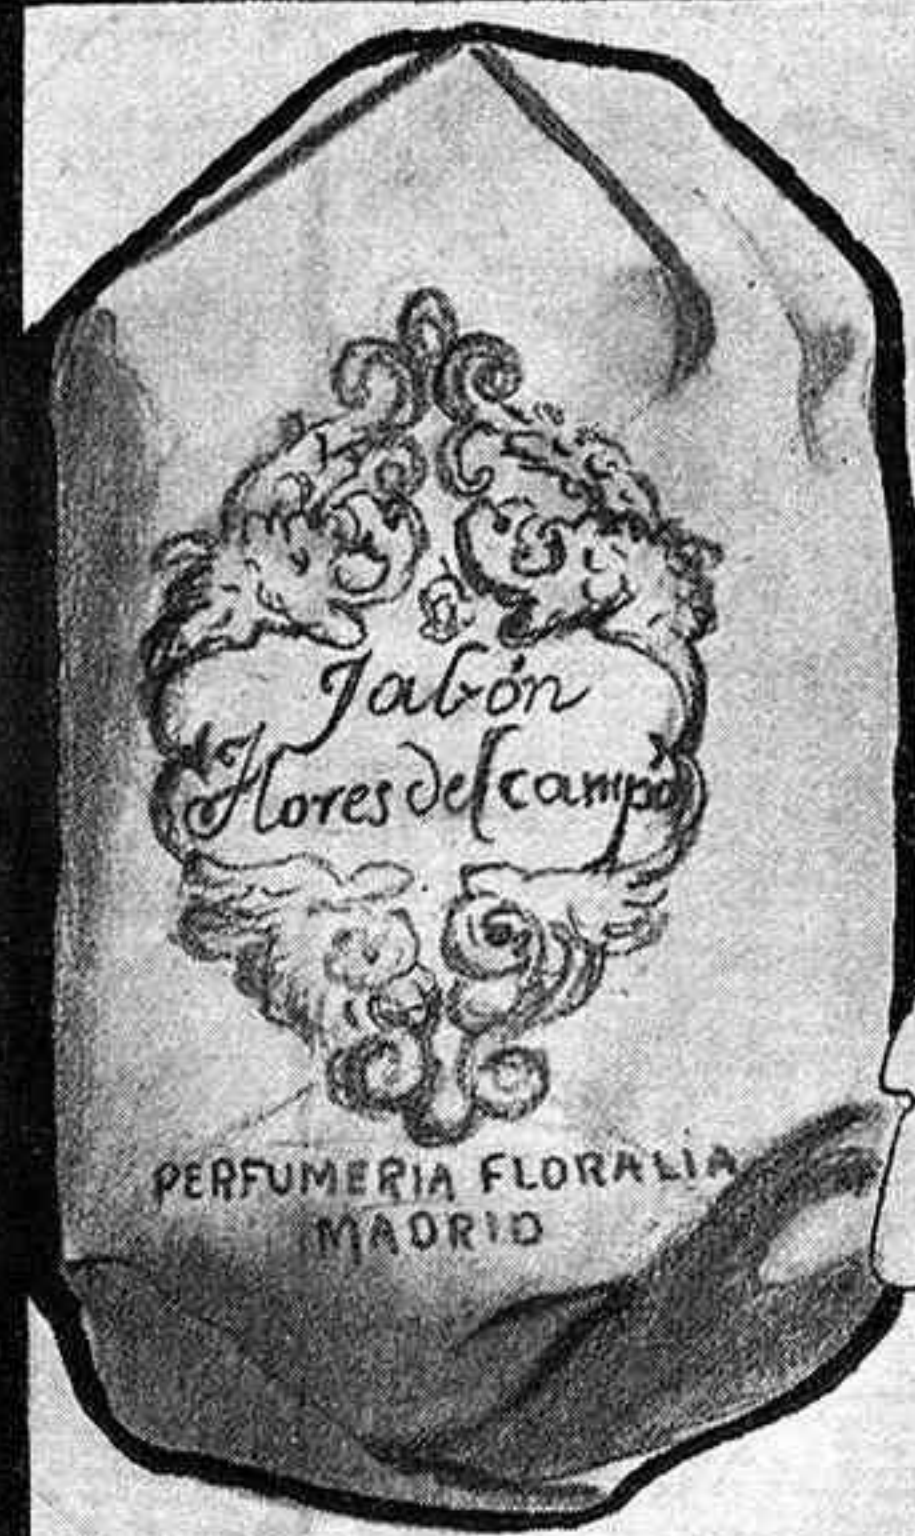 Jabón
Flores del campo
PERFUMERIA FLORALIA
MADRID